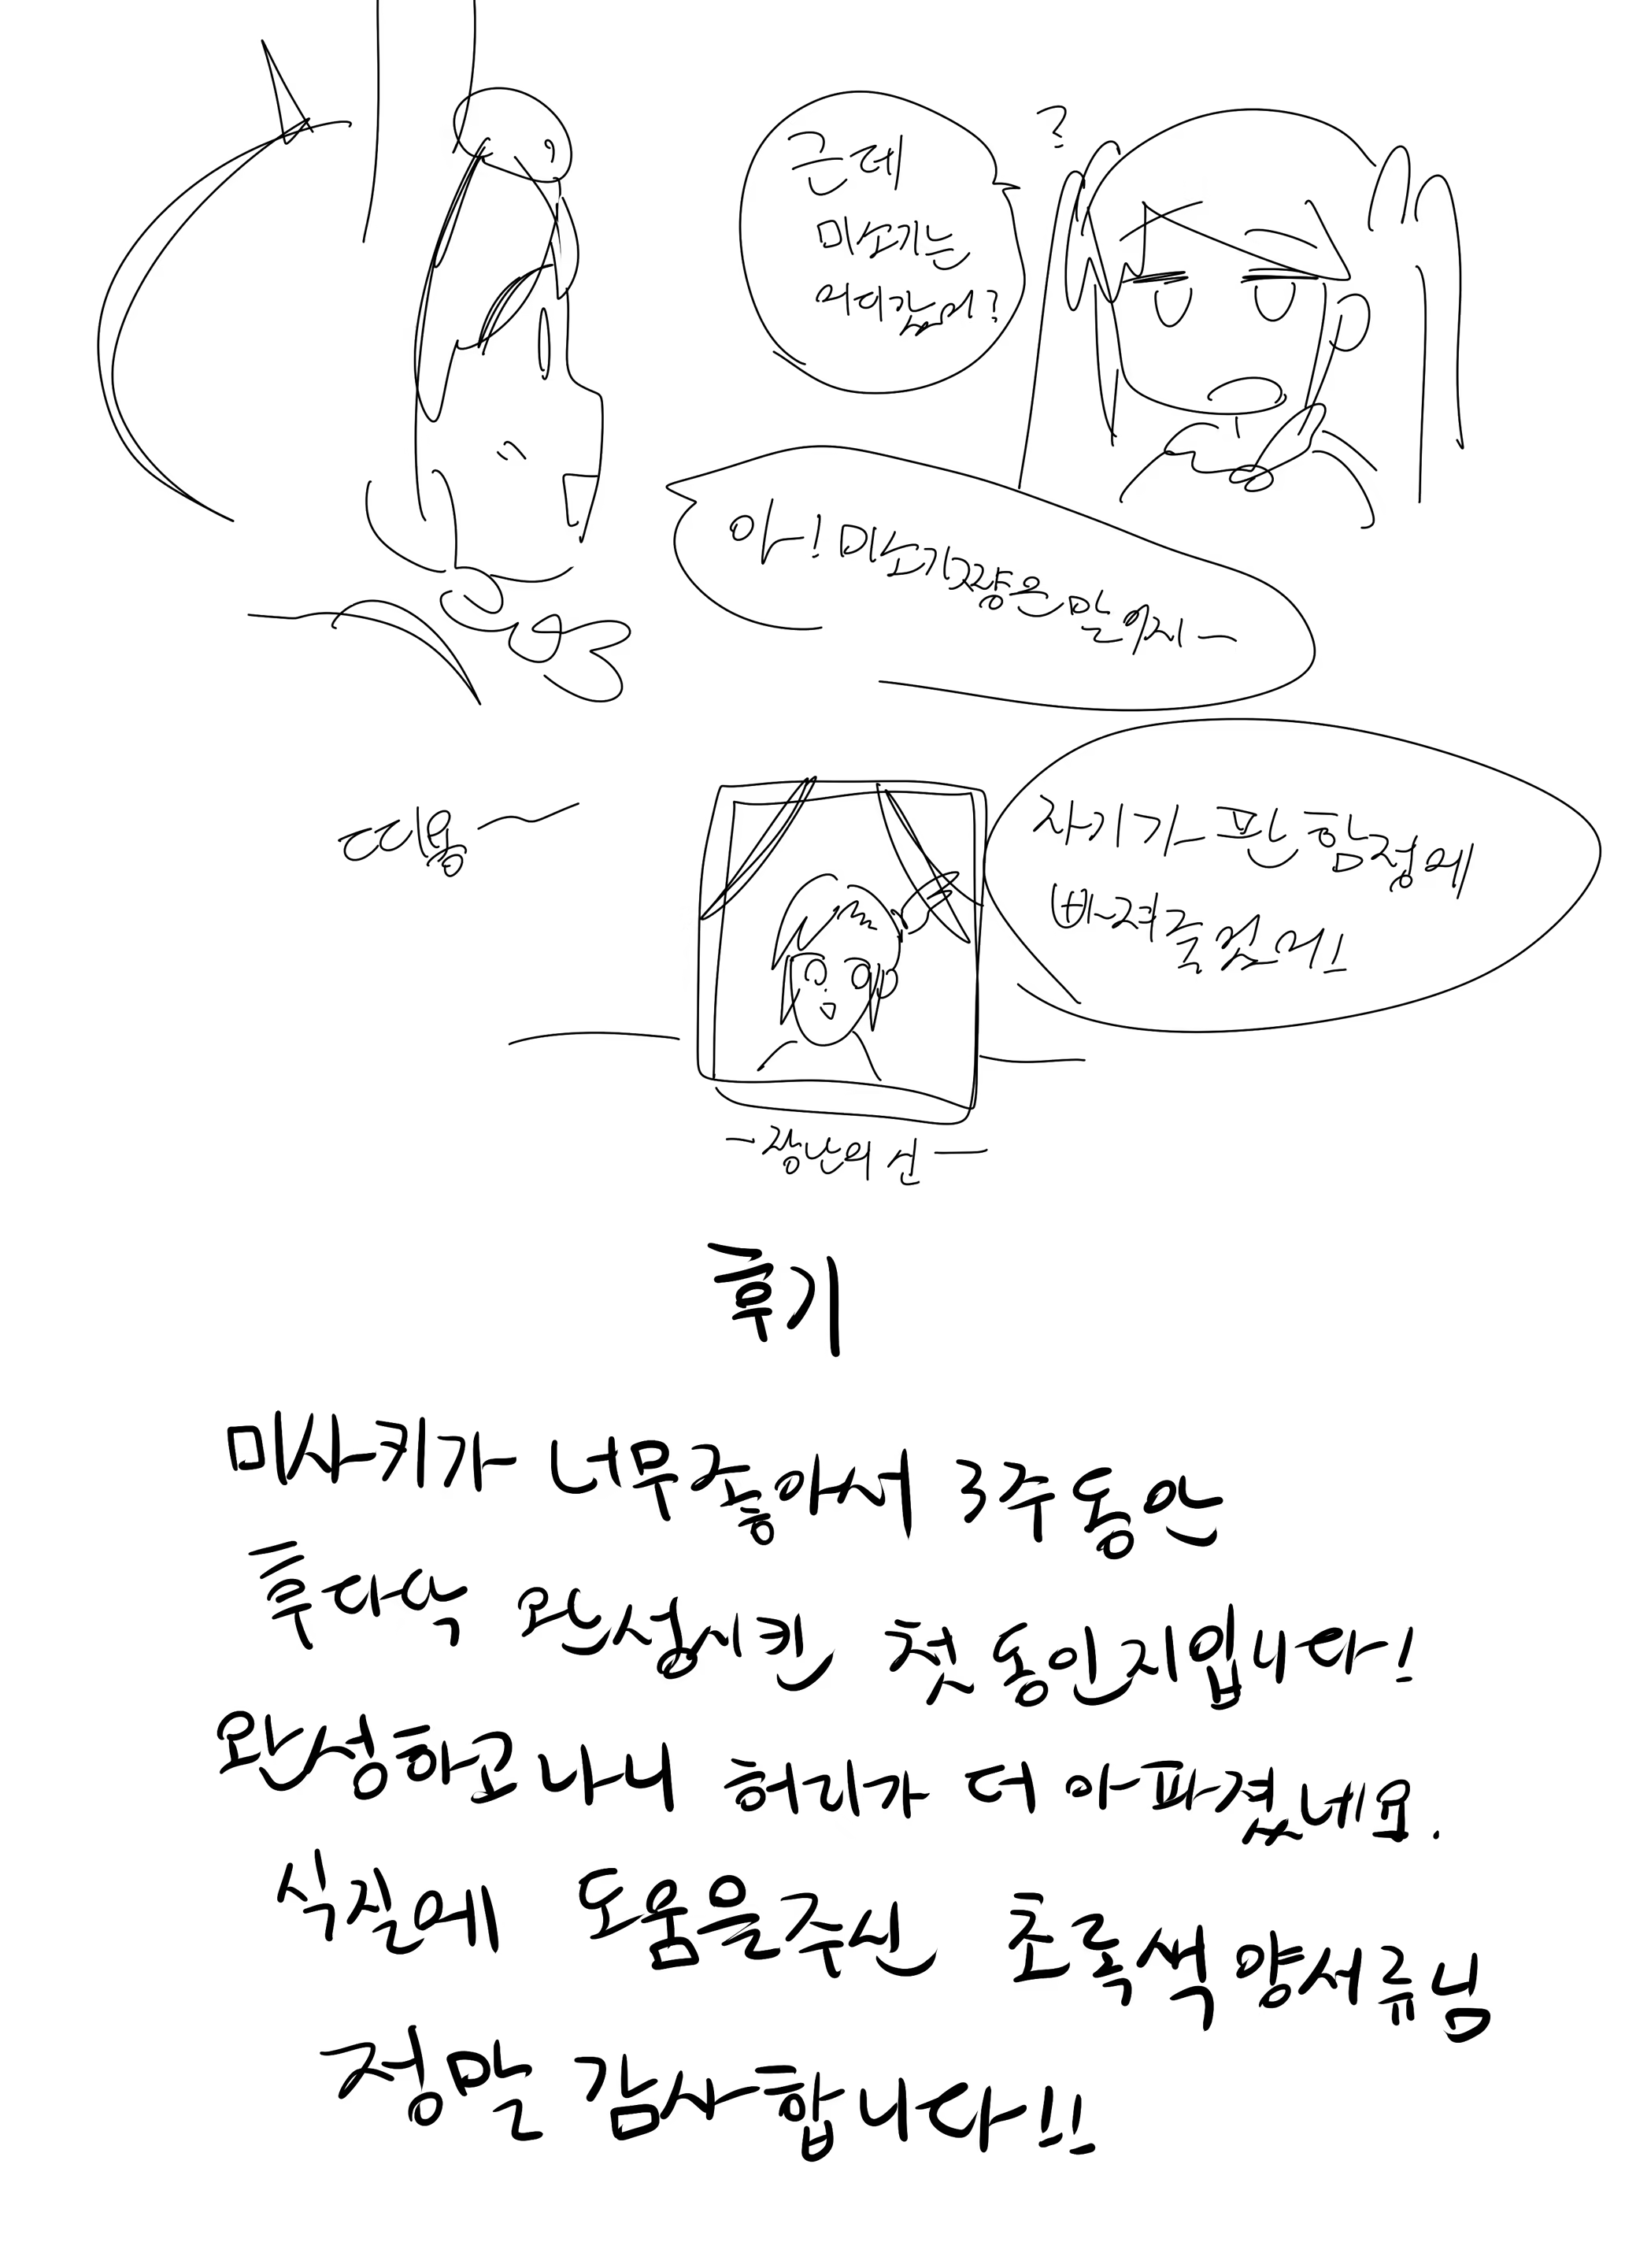 ?
근데
미사키는
어디갔어?
아! 미소기양은말이지~
자기가 판 함정에
버려졌으인
데롱~
-장난의 신-
후기
미사키가 너무좋아서 3주동안
후다닥 완성시킨 첫 동인지입니다!
완성하고나니 허리가 더 아파졌네요.
식질에 도움을주신 초록색양서류님
정말 감사합니다!!